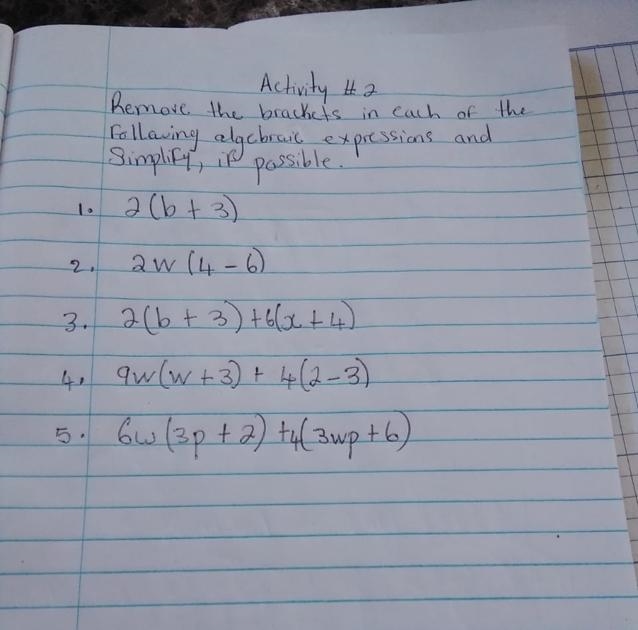 Activity # 2
Remove the brackets in each of the
Following algebraic expressions and
Simplify, if possible.
1. 2(b + 3)
2. 2w (4 - 6)
3. 2(b + 3) +6(x + 4)
4. 9w(w + 3) + 4(2 - 3)
5. 6w (3p + 2) +4(3wp + 6)